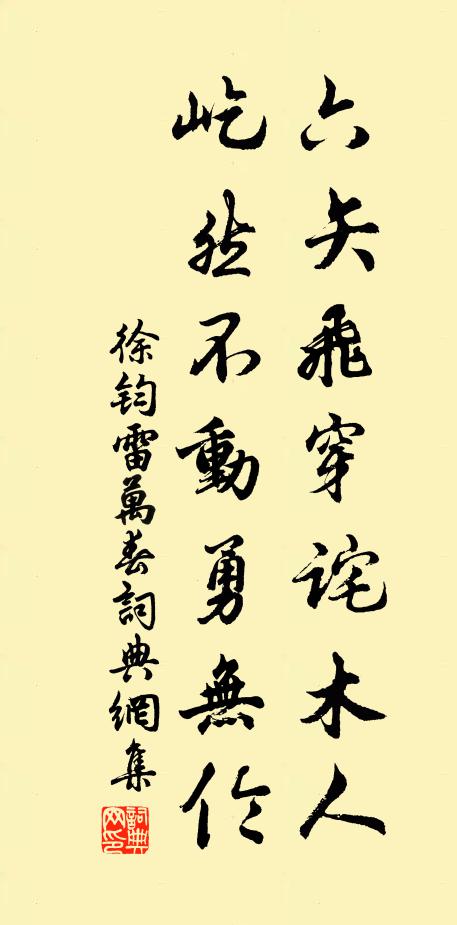 六矢飛穿詫木人
屹然不動勇無倫
徐鈞雷萬春詞典網集
詞典網印